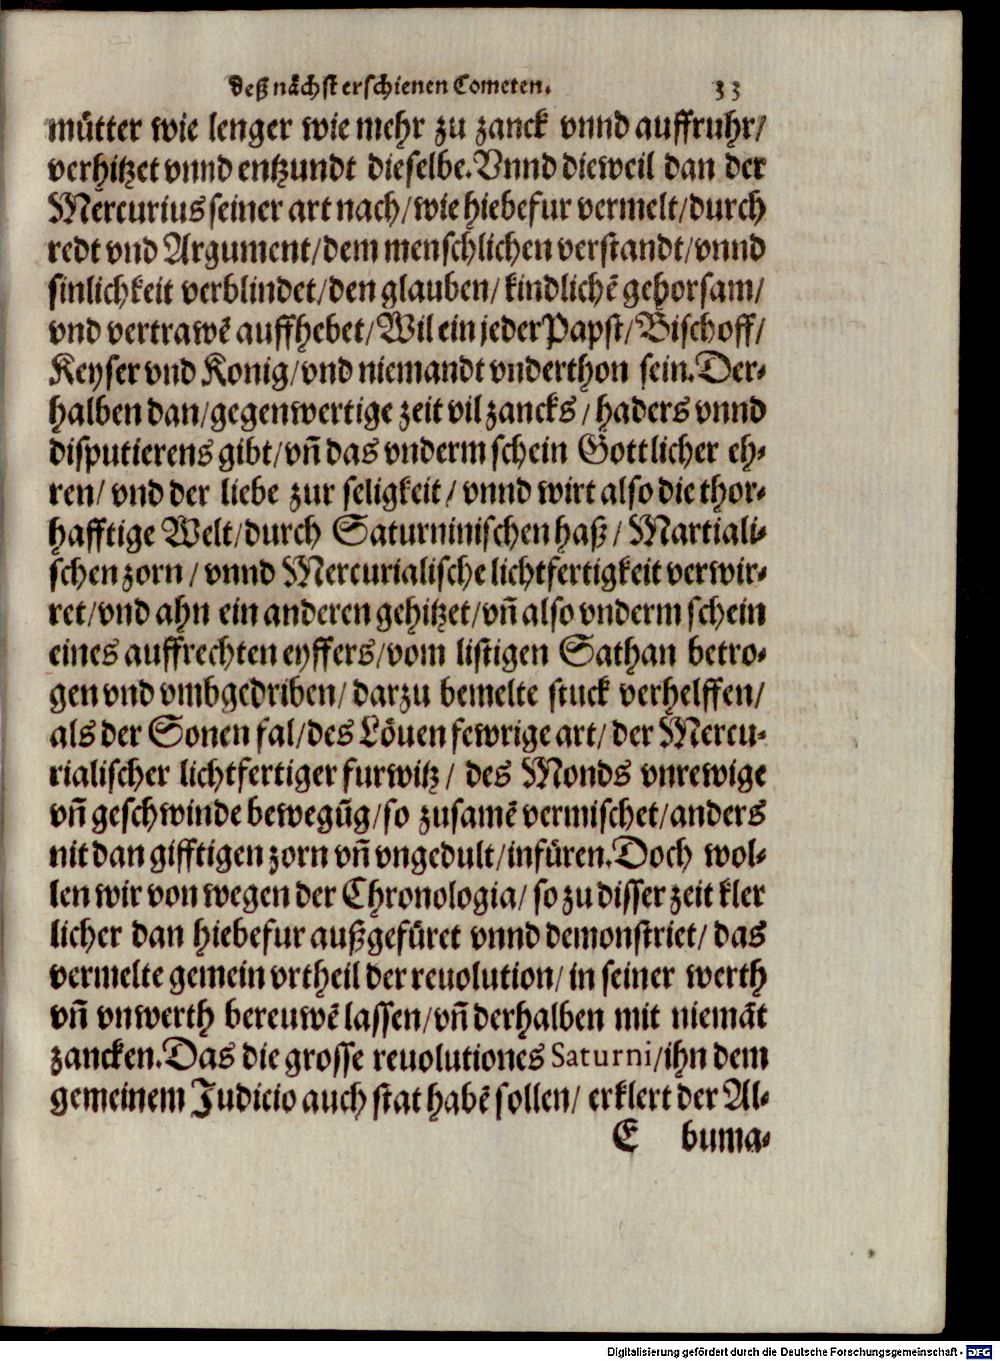 deß nächst erschienen Cometen. 33
mütter wie lenger wie mehr zu zanck vnnd auffruhr/
verhitzet vnnd entzundt dieselbe. Vnnd dieweil dan der
Mercurius seiner art nach/wie hiebefur vermelt/durch
redt vnd Argument/dem menschlichen verstandt/vnnd
sinlichkeit verblindet/den glauben/kindlichẽ gehorsam/
vnd vertrawẽ auffhebet/Wil ein jeder Papst/Bischoff/
Keyser vnd Konig/vnd niemandt vnderthon sein. Der-
halben dan/gegenwertige zeit vil zancks/haders vnnd
disputierens gibt/vñ das vnderm schein Göttlicher eh-
ren/ vnd der liebe zur seligkeit/ vnnd wirt also die thor-
hafftige Welt/durch Saturninischen haß/ Martiali-
schen zorn/ vnnd Mercurialische lichtfertigkeit verwir-
ret/vnd ahn ein anderen gehitzet/vñ also vnderm schein
eines auffrechten eyffers/vom listigen Sathan betro-
gen vnd vmbgedriben/ darzu bemelte stuck verhelffen/
als der Sonen fal/des Löuen fewrige art/ der Mercu-
rialischer lichtfertiger furwitz/ des Monds vnrewige
vñ geschwinde bewegũg/so zusamẽ vermischet/anders
nit dan gifftigen zorn vñ vngedult/infüren. Doch wol-
len wir von wegen der Chronologia/ so zu disser zeit kler
licher dan hiebefur außgefüret vnnd demonstriet/ das
vermelte gemein vrtheil der reuolution/ in seiner werth
vñ vnwerth bereuwẽ lassen/vñ derhalben mit niemãt
zancken. Das die grosse reuolutiones Saturni/ihn dem
gemeinem Judicio auch stat habẽ sollen/ erklert der Al-
E buma-
Digitalisierung gefördert durch die Deutsche Forschungsgemeinschaft - DFG